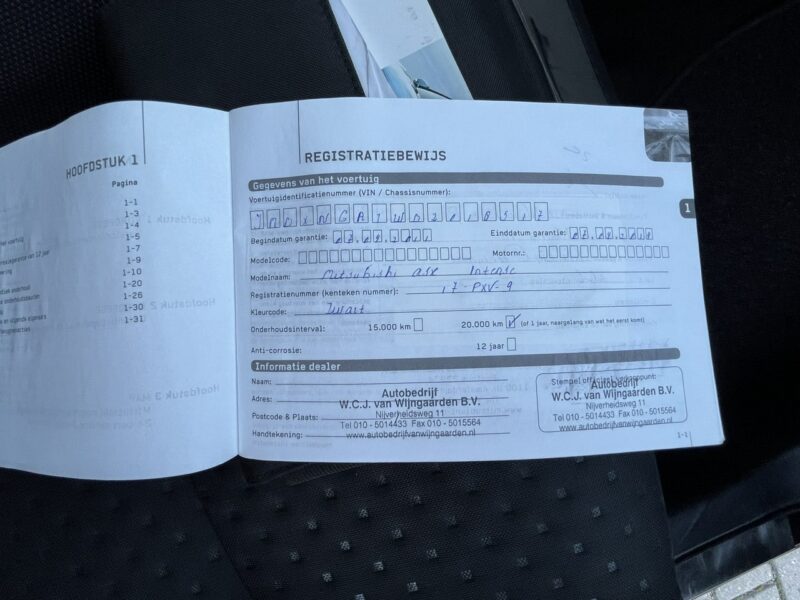 HOOFDSTUK 1
Pagina
1-1
1-3
1-4
1-5
1-7
1-9
1-10
1-20
1-26
1-30
1-31
REGISTRATIEBEWIJS
Gegevens van het voertuig
Voertuigidentificatienummer (VIN / Chassisnummer):
Begindatum garantie:
Einddatum garantie:
Modelcode:
Motornr.:
Modelnaam: Mitsubishi asx Intense
Registratienummer (kenteken nummer): 17-PXV-9
Kleurcode: Zwart
Onderhoudsinterval: 15.000 km 20.000 km (of 1 jaar, naargelang van wat het eerst komt)
Anti-corrosie: 12 jaar
1
Informatie dealer
Naam:
Adres:
Postcode & Plaats:
Handtekening:
Autobedrijf
W.C.J. van Wijngaarden B.V.
Nijverheidsweg 11
Tel 010 - 5014433 Fax 010 - 5015564
www.autobedrijfvanwijngaarden.nl
Stempel officieel
Autobedrijf
W.C.J. van Wijngaarden B.V.
Nijverheidsweg 11
Tel 010 - 5014433 Fax 010 - 5015564
www.autobedrijfvanwijngaarden.nl
1-1